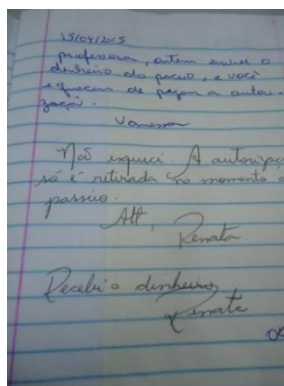 15/04/2015
professora, ontem enviei o
dinheiro do paceio, e você
esqueceu de pegar a autori
zaçã.
Vanessa
Não esqueci. A autorizaçã
só é retirada no momento d
passeio.
Att,
Renata
Recebi o dinheiro
Renata